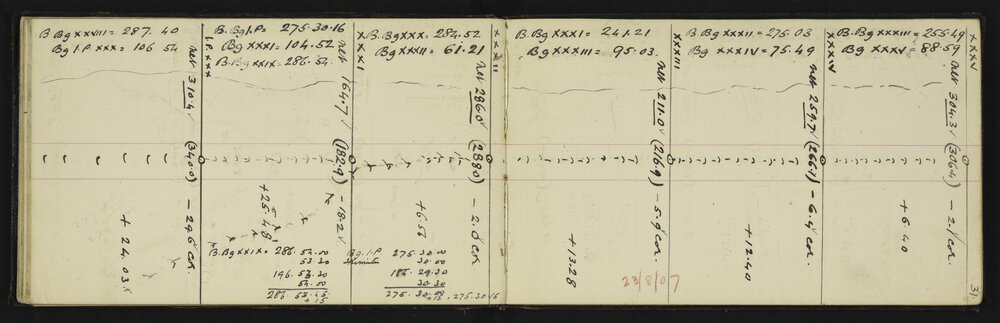 B Bg xxviii = 287. 40
Bg I.P xxx = 106 54
I.P. xxx
nev 310.4
(340.0)
- 29.6 cor.
+ 24.03
B. Bg I.P = 275.30.16
Bg xxxi = 104.52
B. Bg xxix = 286.54.
xxxi
nev 164.7
(182.9)
- 18.2
+25.48
B. Bg xxix = 286.54.00
53.20
196.53.20
54.00
286.53.45
+15
B. Bg xxx = 284.52
Bg xxxii = 61.21
xxxii
nev 286.0
(288.0)
- 2.0 cor
+6.56
Bg. I.P 275.30.00
30.00
30.30
275.30.00
+15, 275.30.15
B. Bg xxxi = 241.21
Bg xxxiii = 95.03.
xxxiii
nev 211.0
(216.9)
- 5.9 cor.
+13.28
23/8/07
B Bg xxxii = 275.03
Bg xxxiv = 75.49
xxxiv
nev 259.7
(266.1)
- 6.4 cor.
+12.40
B. Bg xxxiii = 255.49
Bg xxxv = 88.59
xxxv
nev 304.3
(306.4)
- 2.1 cor.
+6.40
31